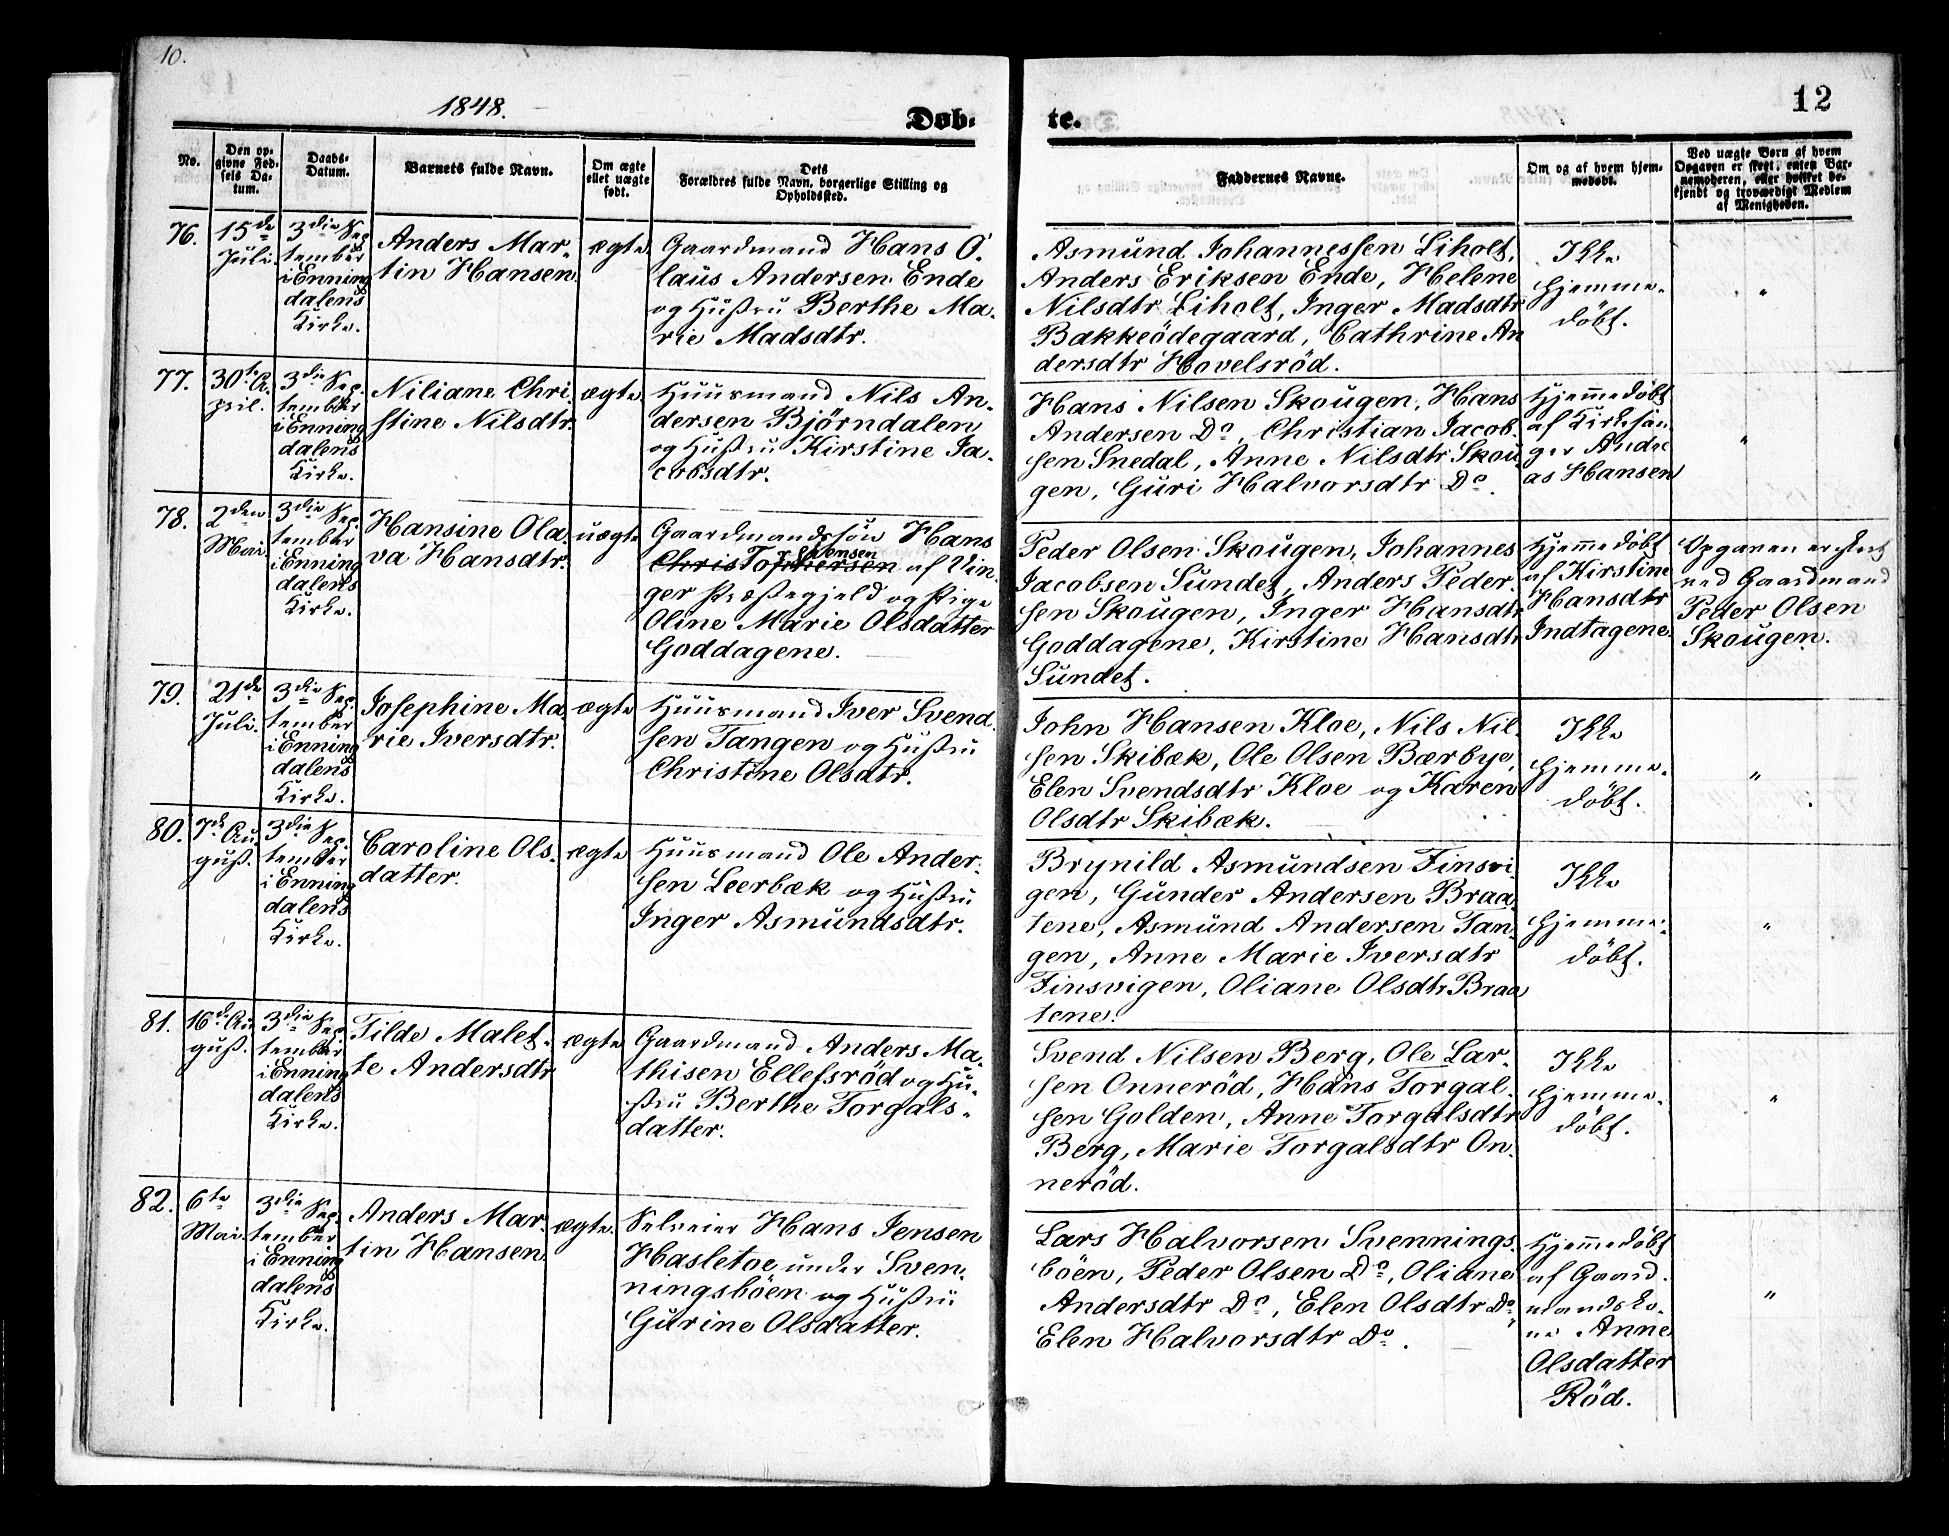 10.
1848.
Døb-
te.
12
No.
Den op-
givne Fød-
sels Da-
tum.
Daabs-
Datum.
Barnets fulde Navn.
Om ægte
eller uægte
født.
Dets
Forældres fulde Navn, borgerlige Stilling og
Opholdssted.
Faddernes Navne.
Om og af hvem hjem-
medøbt.
Ved uægte Børn af hvem
Opgaven er skeet, enten Bar-
nemoderen, eller hvilket be-
kjendt og troværdigt Medlem
af Menigheden.
76.
15de
Juli.
3die Sep
tember
i Enning
dalens
Kirke.
Anders Mar-
tin Hansen.
ægte
Gaardmand Hans O-
laus Andersen Ende
og Hustru Berthe Ma-
rie Madsdtr.
Asmund Johannessen Liholt,
Anders Eriksen Ende, Helene
Nilsdtr Liholt, Inger Madsdtr
Bakkeödegaard, Cathrine An
dersdtr Hovelsröd.
Ikke
hjemme-
döbt.
"
77.
30te A-
pril.
3die Sep.
tember
i Enning
dalens
Kirke.
Niliane Chri-
stine Nilsdtr.
ægte
Huusmand Nils An-
dersen Björndalen
og Hustru Kirstine Ja-
cobsdtr.
Hans Nilsen Skougen, Hans
Andersen Do, Christian Jacob-
sen Snedal, Anne Nilsdtr Skou
gen, Guri Halvorsdtr Do.
Hjemmedöbt
af Kirkesan
ger Andre
as Hansen
"
78.
2den
Mai
3die Sep.
tember
i Enning
dalens
Kirke.
Hansine Ola
va Hansdtr.
uægte
Gaardmandssön Hans
Christophersen af Vin-
ger Præstegjeld og Pige
Oline Marie Olsdatter
Goddagene.
Peder Olsen Skougen, Johannes
Jacobsen Sundet, Anders Peder-
sen Skougen, Inger Hansdtr
Goddagene, Kirstine Hansdtr
Sundet.
Hjemmedöbt
af Kirstine
Hansdtr
Indtagene.
Opgaven er skeet
ved Gaardmand
Peder Olsen
Skougen.
79.
21de
Juli.
3die Sep.
tember
i Enning
dalens
Kirke.
Josephine Ma
rie Iversdtr.
ægte
Huusmand Iver Svend-
sen Tangen og Hustru
Christine Olsdtr.
John Hansen Kloe, Nils Nil-
sen Skibæk, Ole Olsen Bærbye,
Elen Svendsdtr Kloe og Karen
Olsdtr Skibæk.
Ikke
hjemme-
döbt.
"
80.
7de Au-
gust.
3die Sep.
tember
i Enning
dalens
Kirke.
Caroline Ols-
datter.
ægte
Huusmand Ole Ander-
sen Leerbæk og Hustru
Inger Asmundsdtr.
Brynild Asmundsen Finsvi-
gen, Gunder Andersen Braa
tene, Asmund Andersen Tan-
gen, Anne Marie Iversdtr
Finsvigen, Oliane Olsdtr Braa
tene.
Ikke
hjemme-
döbt.
"
81.
16de Au
gust.
3die Sep.
tember
i Enning
dalens
Kirke.
Tilde Malet-
te Andersdtr
ægte
Gaardmand Anders Ma-
thisen Ellefsröd og Hu-
stru Berthe Torgals-
datter.
Svend Nilsen Berg, Ole Lar-
sen Onneröd, Hans Torgal-
sen Golden, Anne Torgalsdtr
Berg, Marie Torgalsdtr On-
neröd.
Ikke
hjemme-
döbt.
"
82.
6te
Mai.
3die Sep.
tember
i Enning
dalens
Kirke.
Anders Mar-
tin Hansen.
ægte.
Selveier Hans Jensen
Hasletoe under Sven-
ningsböen og Hustru
Gurine Olsdatter.
Lars Halvorsen Svennings-
böen, Peder Olsen Do, Oliane
Andersdtr Do, Elen Olsdtr Do,
Elen Halvorsdtr Do.
Hjemmedöbt
af Gaard-
mandsko-
ne Anne
Olsdatter
Röd.
"